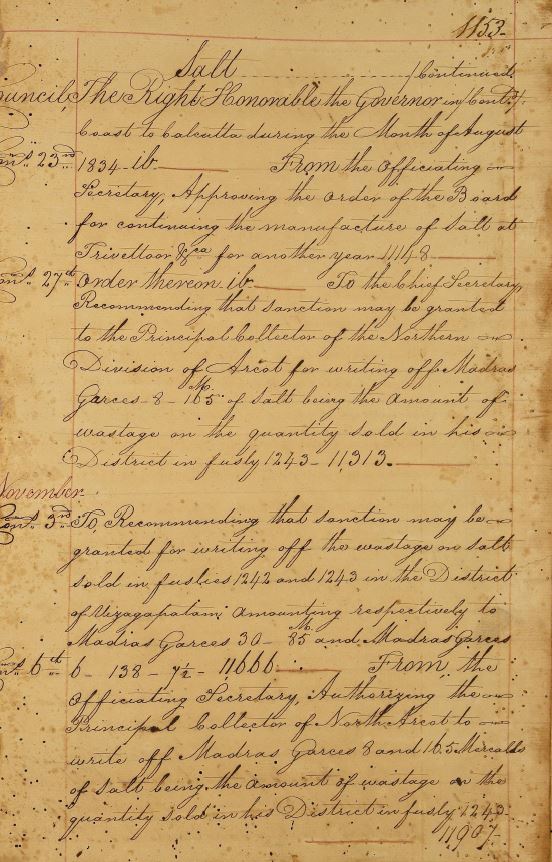 1153.
Salt /Continued.
Council, The Right Honorable the Governor in/Cont.d/.
Coast to Calcutta during the Month of August
Cons. 23rd 1834 - ib. From the Officiating
Secretary, Approving the Order of the Board
for continuing the manufacture of Salt at
Trivettoor &ca for another year 11148
Cons. 27th Order thereon. ib. To the Chief Secretary,
Recommending that sanction may be granted
to the Principal Collector of the Northern
Division of Arcot for writing off Madras
M.
Garces - 8 - 165 of Salt being the Amount of
wastage on the quantity sold in his
District in fusly 1243 - 11,313.
November
Cons. 3rd To, Recommending that sanction may be
granted for writing off the wastage on salt
sold in fuslies 1242 and 1243 in the District
of Vizagapatam, amounting respectively to
M.
Madras Garces 30 - 85 and Madras Garces
Cons. 6th 6 - 138 - 7½ - 11,666. From the
Officiating Secretary, Authorizing the
Principal Collector of North Arcot to
write off Madras Garces 8 and 165 Mercals
of Salt being the Amount of wastage on the
quantity sold in his District in fusly 1243.
11907.